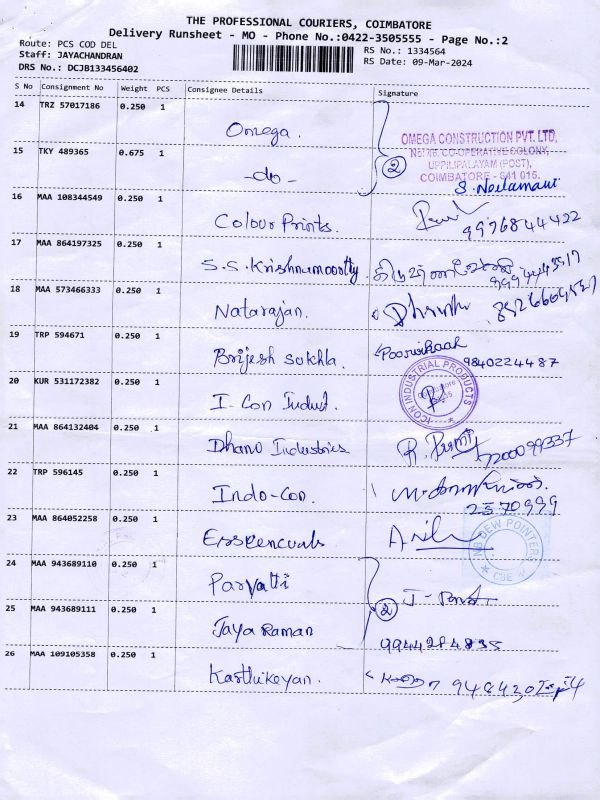 THE PROFESSIONAL COURIERS, COIMBATORE
Delivery Runsheet - MO - Phone No.:0422-3505555 - Page No.:2
Route: PCS COD DEL
RS No.: 1334564
Staff: JAYACHANDRAN
RS Date: 09-Mar-2024
DRS No.: DCJB133456402
S No Consignment No Weight PCS Consignee Details Signature
14 TRZ 57017186 0.250 1 Omega.
OMEGA CONSTRUCTION PVT. LTD,
CO-OPERATIVE COLONY,
UPPILIPALAYAM (POST),
COIMBATORE - 641 015.
15 TKY 489365 0.675 1 -do- 2 S. Neelamani
16 MAA 108344549 0.250 1 Colour Prints. 9976844422
17 MAA 864197325 0.250 1 S.S. Krishnamoorthy
18 MAA 573466333 0.250 1 Natarajan.
19 TRP 594671 0.250 1 Brijesh sukhla. 9840224487
20 KUR 531172382 0.250 1 I-Con Indust.
ICON INDUSTRIAL PRODUCTS
21 MAA 864132404 0.250 1 Dhano Industries
22 TRP 596145 0.250 1 Indo-Con. 2570999
23 MAA 864052258 0.250 1
DEW POINTERS
CBE
24 MAA 943689110 0.250 1 Parvatti
25 MAA 943689111 0.250 1 Jaya Raman 2 9944284835
26 MAA 109105358 0.250 1 Karthikeyan.